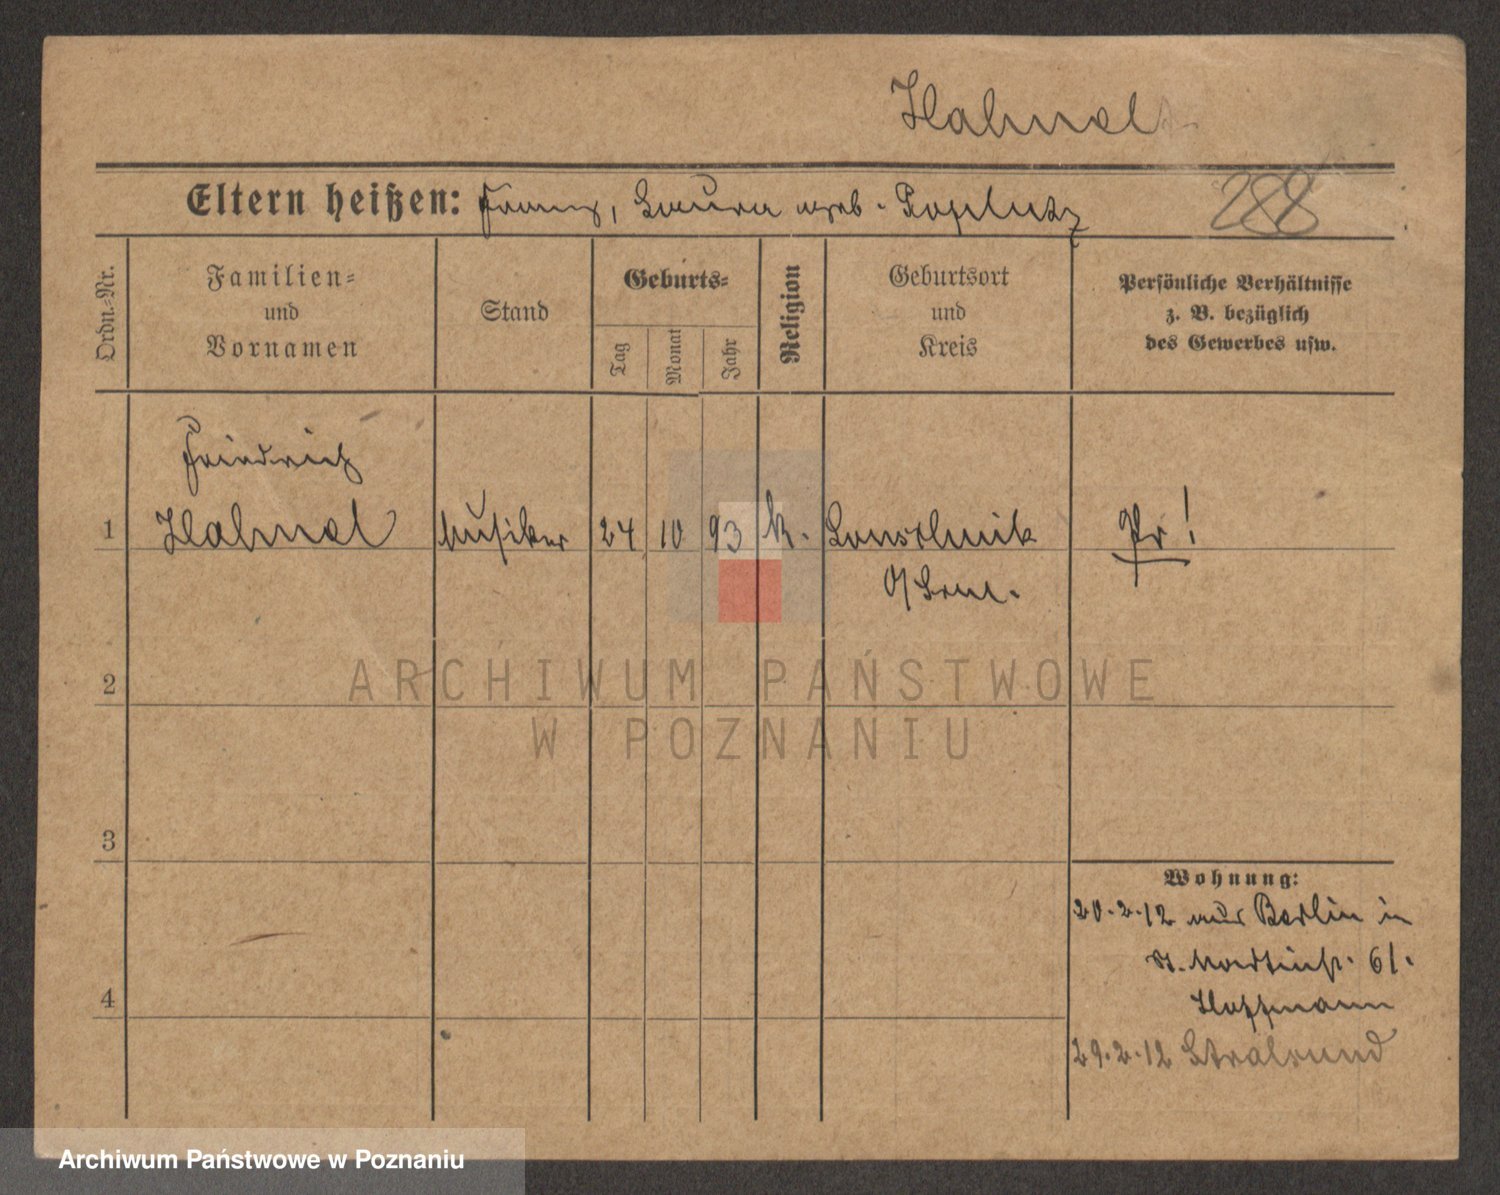 Hahnel
Eltern heißen: Franz, Laura geb.
288
Ordn.=Nr.
Familien=
und
Vornamen
Stand
Geburts=
Tag
Monat
Jahr
Religion
Geburtsort
und
Kreis
Persönliche Verhältnisse
z. B. bezüglich
des Gewerbes usw.
Friedrich
1 Hahnel Musiker 24 10 93 k. Pr!
2
3
4
Wohnung:
20.2.12 aus Berlin in
St. Martinstr. 61.
Hoffmann
29.2.12 Stralsund
ARCHIWUM PAŃSTWOWE
W POZNANIU
Archiwum Państwowe w Poznaniu